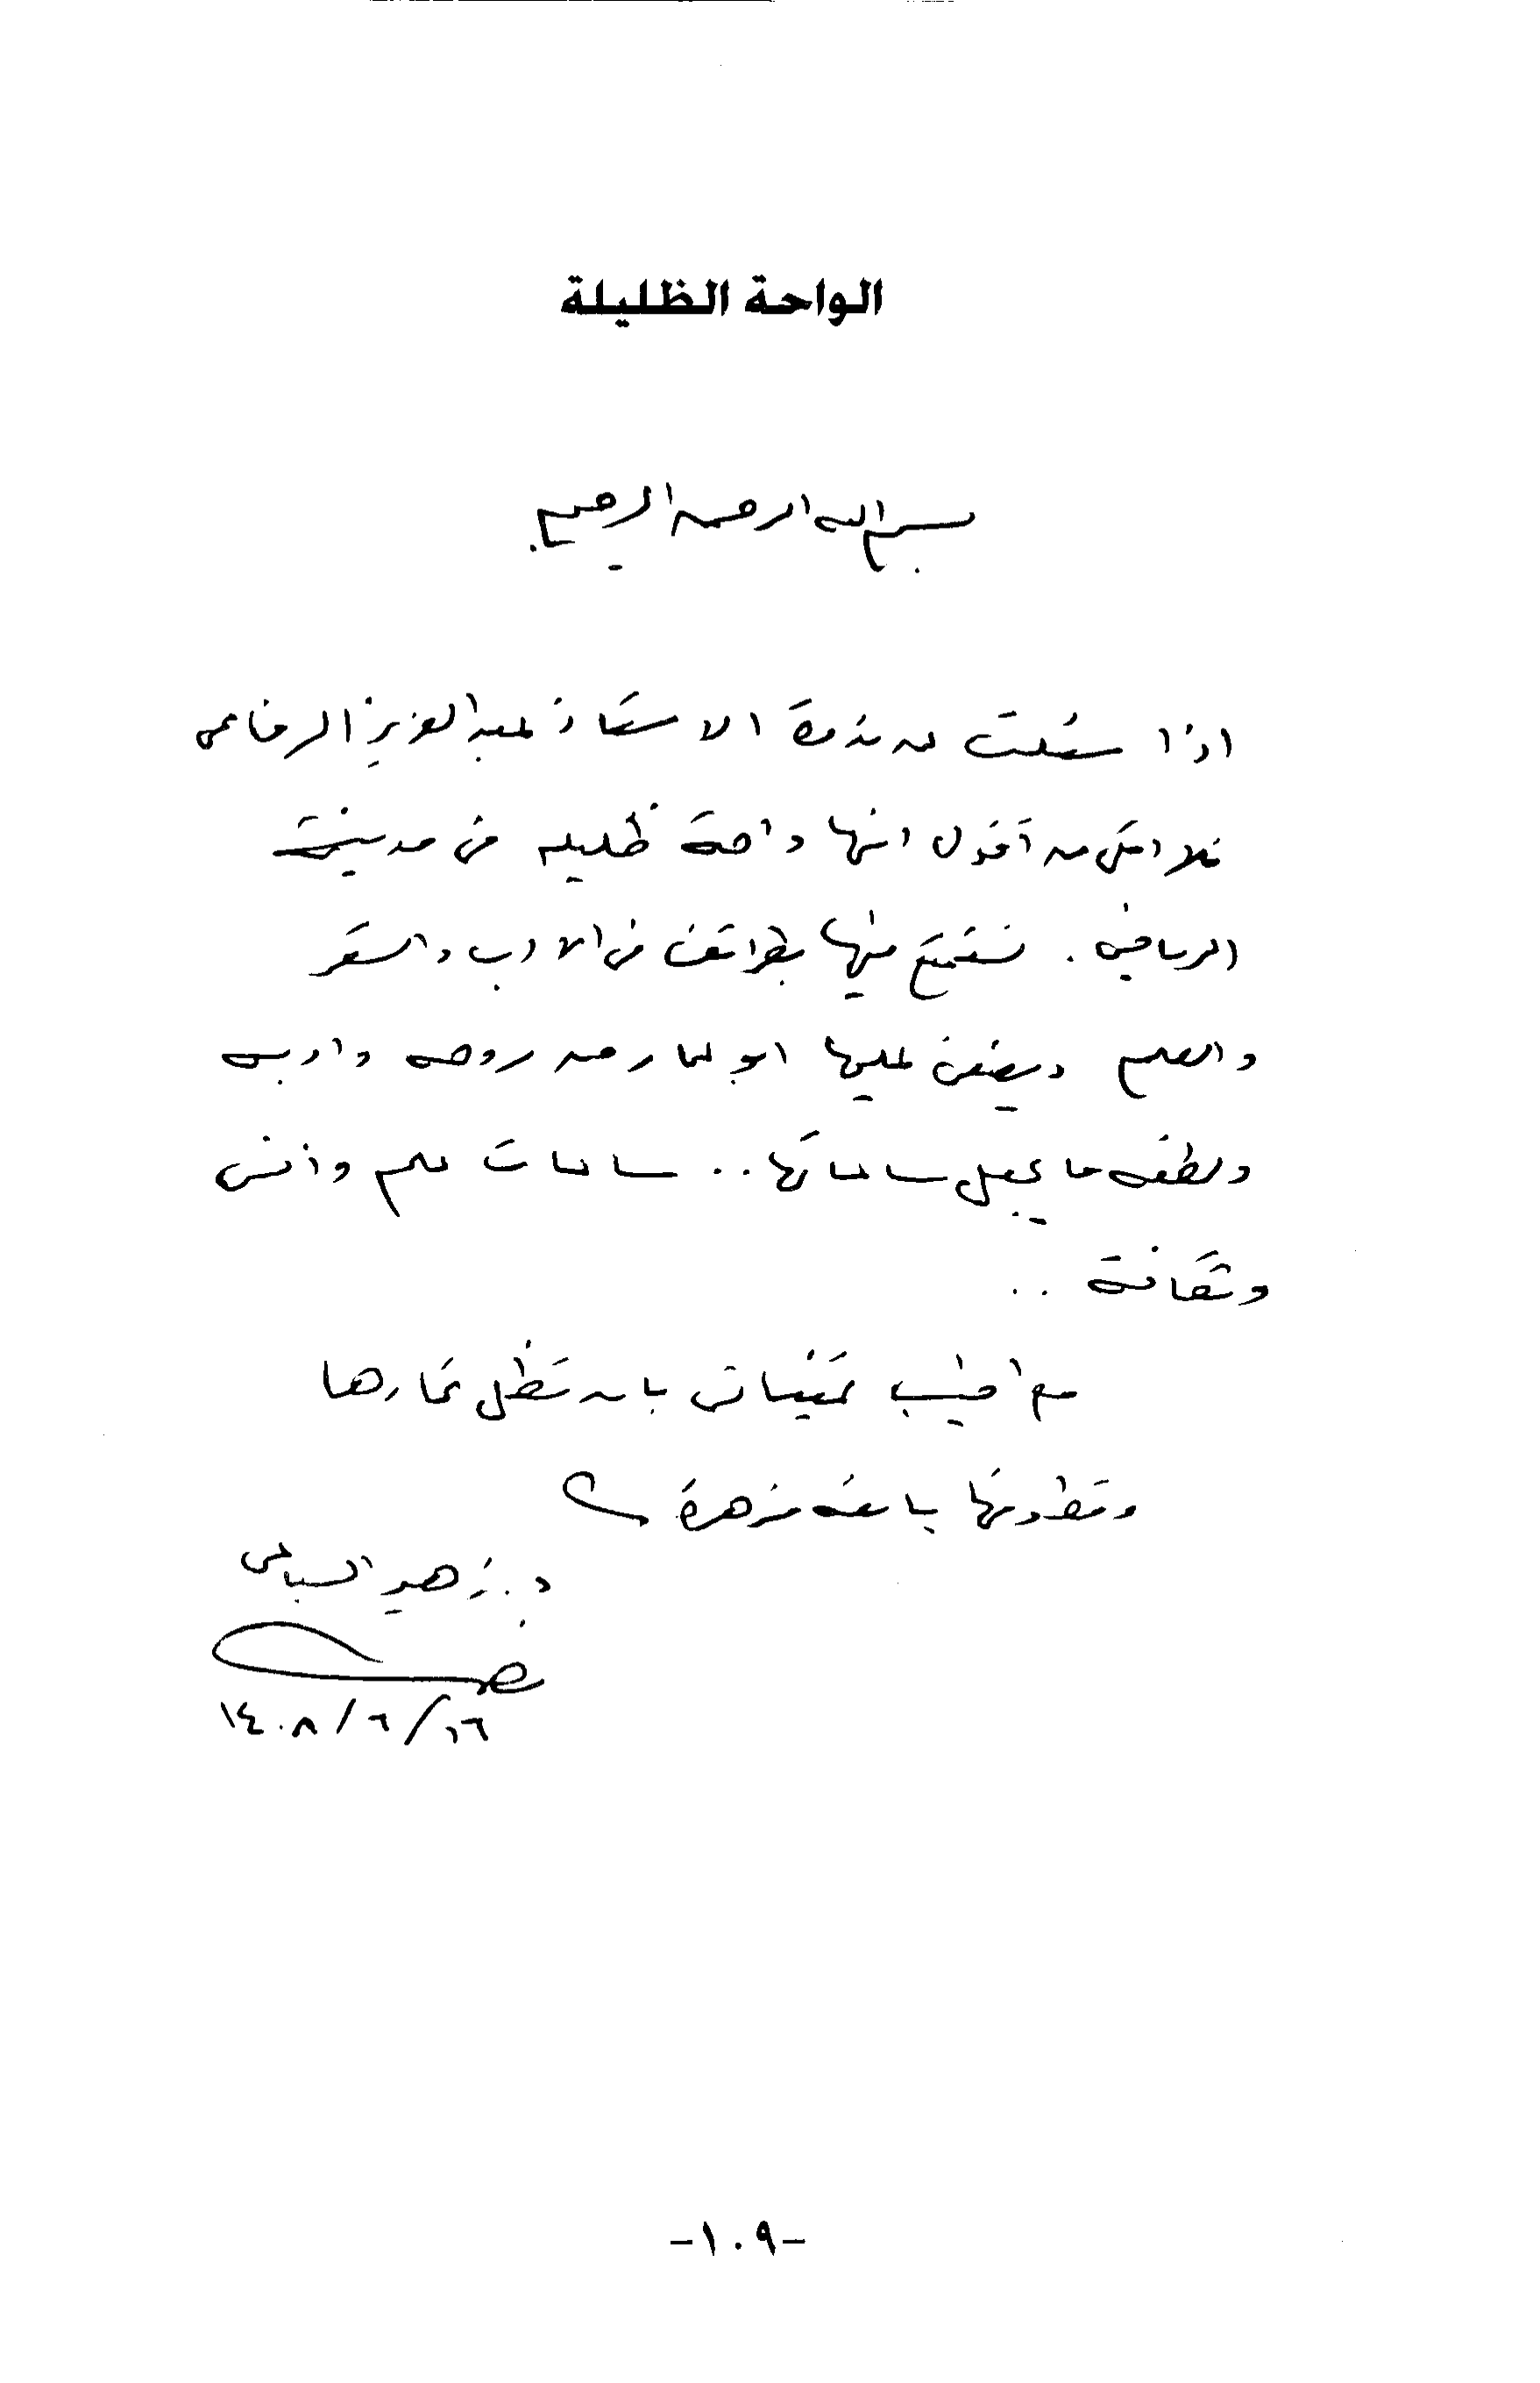 الواحة الظليلة
بسم الله الرحمن الرحيم
اذا سئلت عن ندوة الاستاذ عبدالعزيز الرفاعى
فلا املك من أقول انها واحة ظليله فى مدينة
الرياض . نستمتع فيها بطرائف من الادب والشعر
والعلم ويضفى عليها ابو عمار من روحه وادبه
ولطفه ما يجعل ساعاتها .. ساعات علم وانس
وثقافة ..
مع اطيب تمنياتى بان تظل ثمارها
وقطوفها يانعه مزهرة
د . زهير السباعى
١٤٠٨/٦/١٦
-١٠٩-